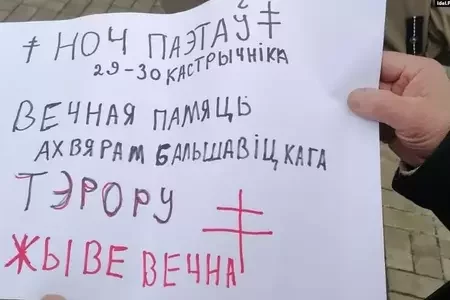 ‡ НОЧ ПАЭТАЎ ‡
29-30 КАСТРЫЧНІКА
ВЕЧНАЯ ПАМЯЦЬ
АХВЯРАМ БАЛЬШАВІЦКАГА
ТЭРОРУ
ЖЫВЕ ВЕЧНА